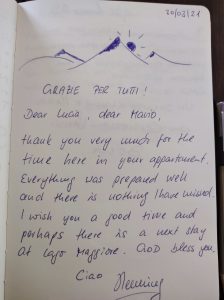 20/03/21
GRAZIE PER TUTTI!
Dear Lucia, dear Mario,
thank you very much for the
time here in your appartment.
Everything was prepared well
and there is nothing I have missed.
I wish you a good time and
perhaps there is a next stay
at Lago Maggiore. GOD bless you.
Ciao